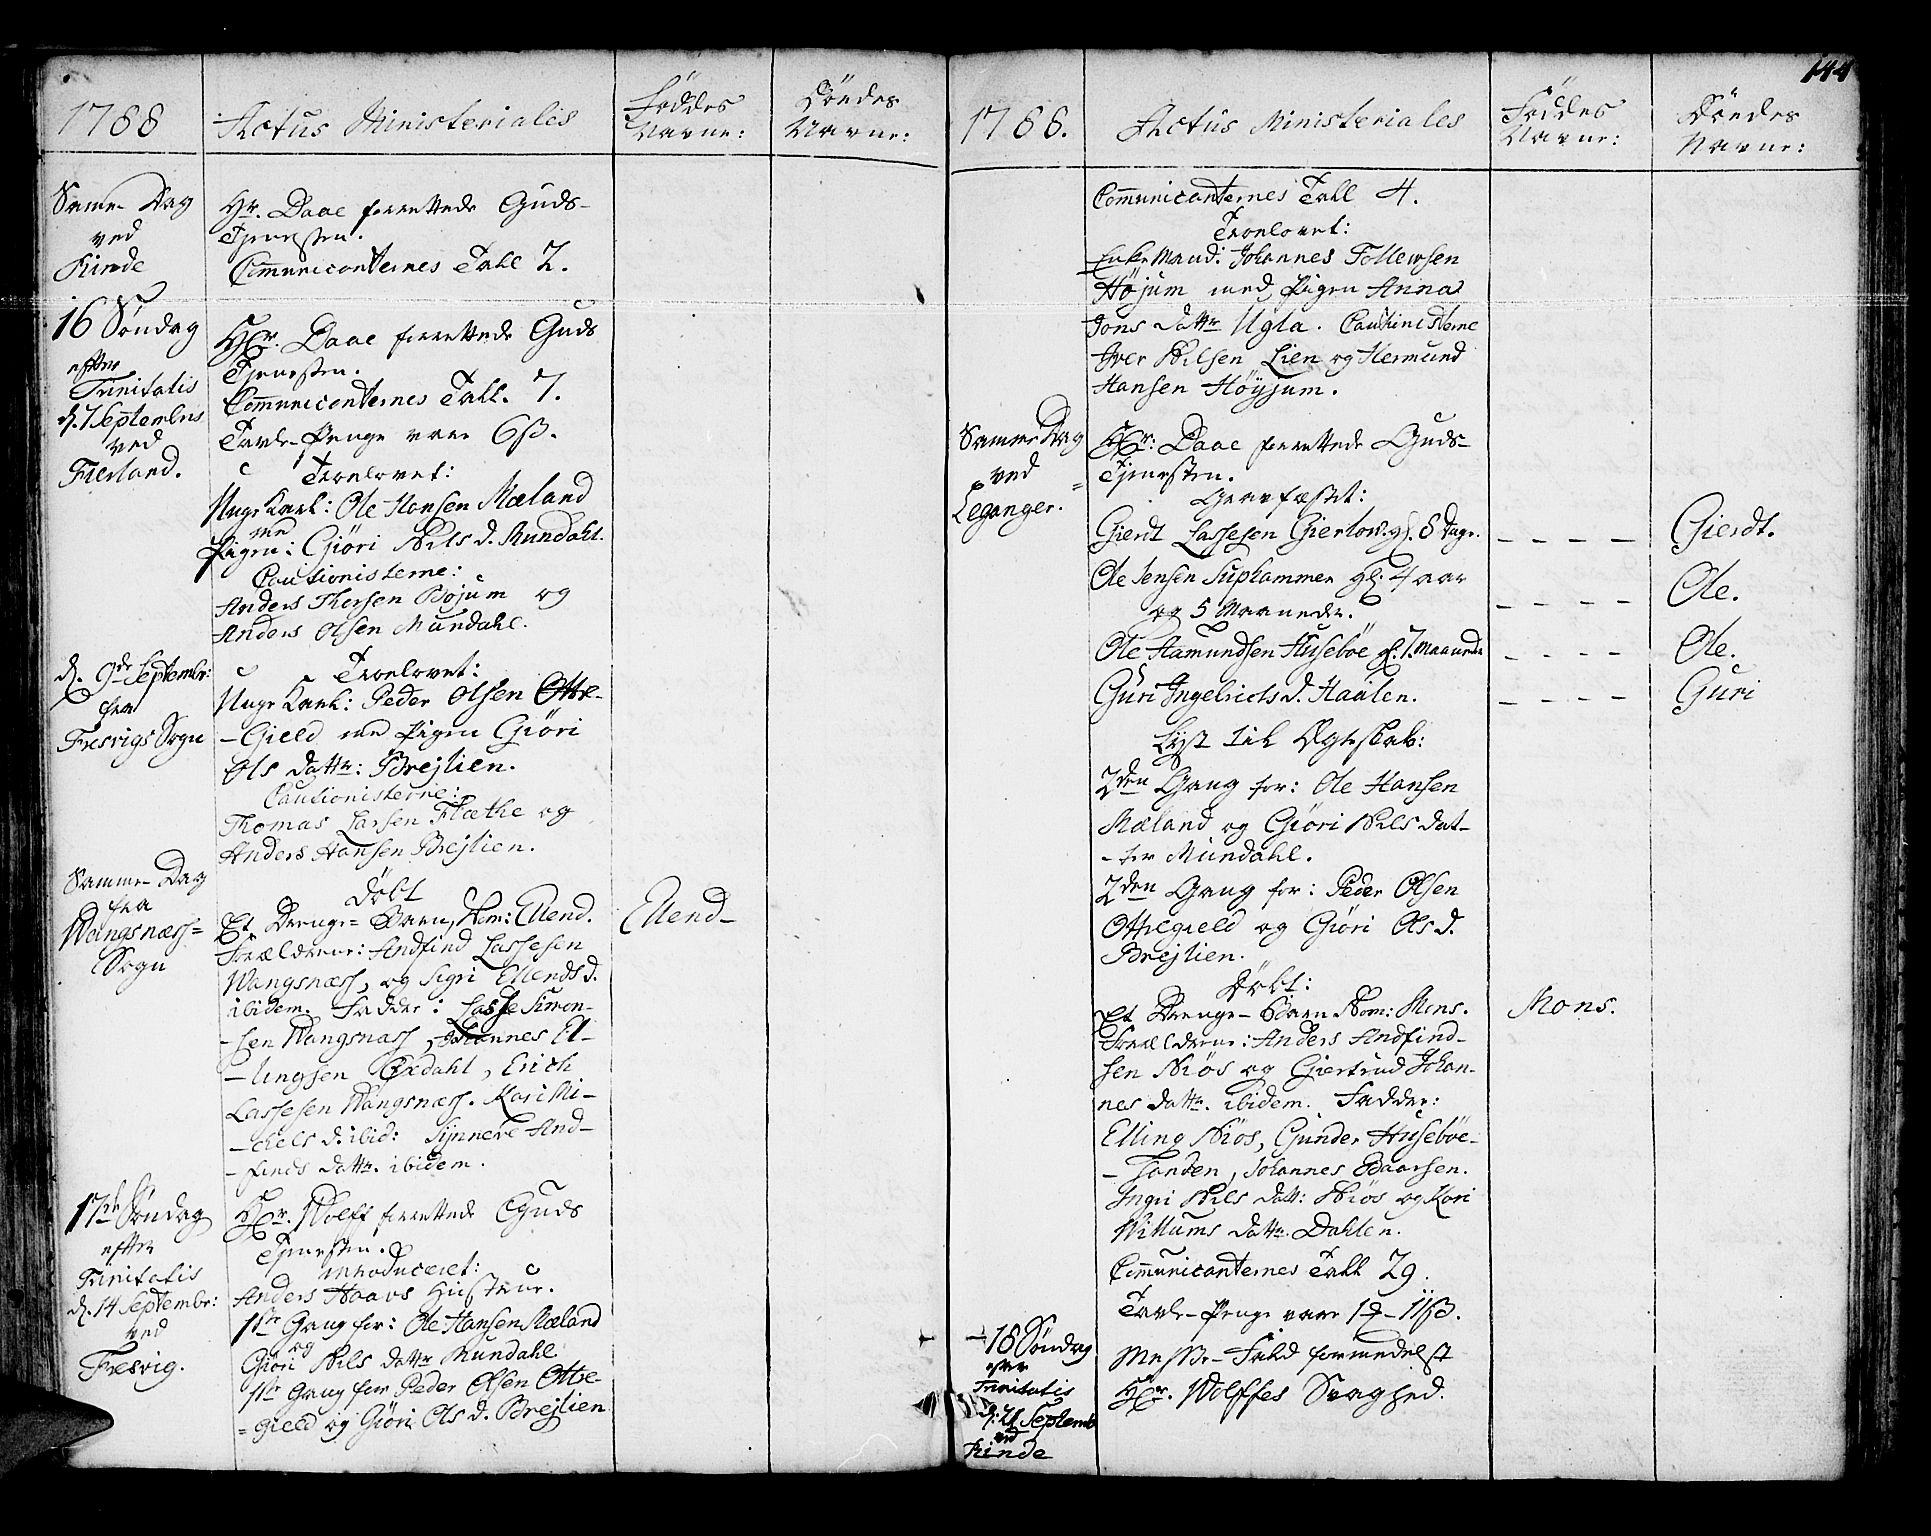 1788
Actus Ministeriales
Föddes
Navne:
Döedes
Navne:
Samme Dag
ved
Rinde
Hr. Daae forrettede Guds-
Tjenesten.
Communicanternes Tall 2.
16 Söndag
efter
Trinitatis
d. 7 Septembris
ved
Fierland.
Hr. Daae forrettede Guds
Tjenesten.
Communicanternes Tall. 7.
Tavle-Penge vare 6 ß.
Troelovet:
Unge Karl: Ole Hansen Mæland
med
Pigen: Giöri Nils d. Mundahl.
Cautionisterne:
Anders Thersen Böjum og
Anders Olsen Mundahl.
d. 9de Septembr:
fra
Fresvigs Sogn
Troelovet:
Unge Karl: Peder Olsen Ottre-
-Gield med Pigen Giöri
Ols datter: Brejlien.
Cautionisterne:
Thomas Larsen Flæthe og
Anders Hansen Brejlien.
Samme Dag
fra
Wangsnæss-
Sogn
Döbt
Et Drenge-Barn, Nom: Ellend.
Forældrene: Andfind Lassesen
Wangsnæss, og Sigri Ellends d.
ibidem. Fadder: Lasse Simon-
-sen Wangsnæss, Johannes El-
-lingsen Öxdahl, Erich
Lassesen Wangsnæss. Kari Mi-
-chels d. ibid: Synneve And-
-finds datter. ibidem.
Ellend-
17de Söndag
efter
Trinitatis
d. 14 Septembr:
ved
Fresvig.
Hr. Wolff forrettede Guds
Tjenesten.
Introduceret:
Anders Haavs Hustrue.
1ste Gang for: Ole Hansen Mæland
og
Giöri Nils datter Mundahl
1ste Gang for Peder Olsen Ottre-
=gield og Giöri Ols d. Brejlien
144
1788.
Actus Ministeriales
Föddes
Navne:
Döedes
Navne:
Communicanternes Tall 4.
Troelovet:
Enke Mand: Johannes Tollewsen
Höjum med Pigen Anna
Jons datter Ugla. Cautinisterne
Iver Nilsen Lien og Hermund
Hansen Höyjum.
Samme Dag
ved
Leganger.
Hr: Daae forrettede Guds-
Tjenesten.
Gravfæstet:
Gierdt Lassesen Gierlow. gl. 8 Dage.
Gierdt.
Ole Jensen Suphammer gl. 4 aar
og 5 Maaneder.
Ole.
Ole Hamundsen Huseböe gl. 7. Maaneder
Ole.
Guri Ingebricts d. Haalen.
Guri
Lyst til Ægteskab:
2den Gang for: Ole Hansen
Mæland og Giöri Nils dat-
-ter Mundahl.
2den Gang for: Peder Olsen
Ottregield og Giöri Ols d.
Brejlien.
Döbt:
Et Drenge-Barn Nom: Mons.
Forældrene: Anders Andfind-
sen Niös og Giertrud Johan-
nes datter. ibidem. Fadder:
Elling Niös, Gunder Huseböe-
-Sanden, Johannes Edaarsen.
Ingri Nils datt: Niös og Kari
Willums datter. Dahlen.
Communicanternes Tall 29.
Tavle-Penge vare
Mons.
18 Söndag
efter
Trinitatis
d: 21 Septemb
ved
Rinde
Messe-Fald formedelst
Hr. Wolffes Svaghed.